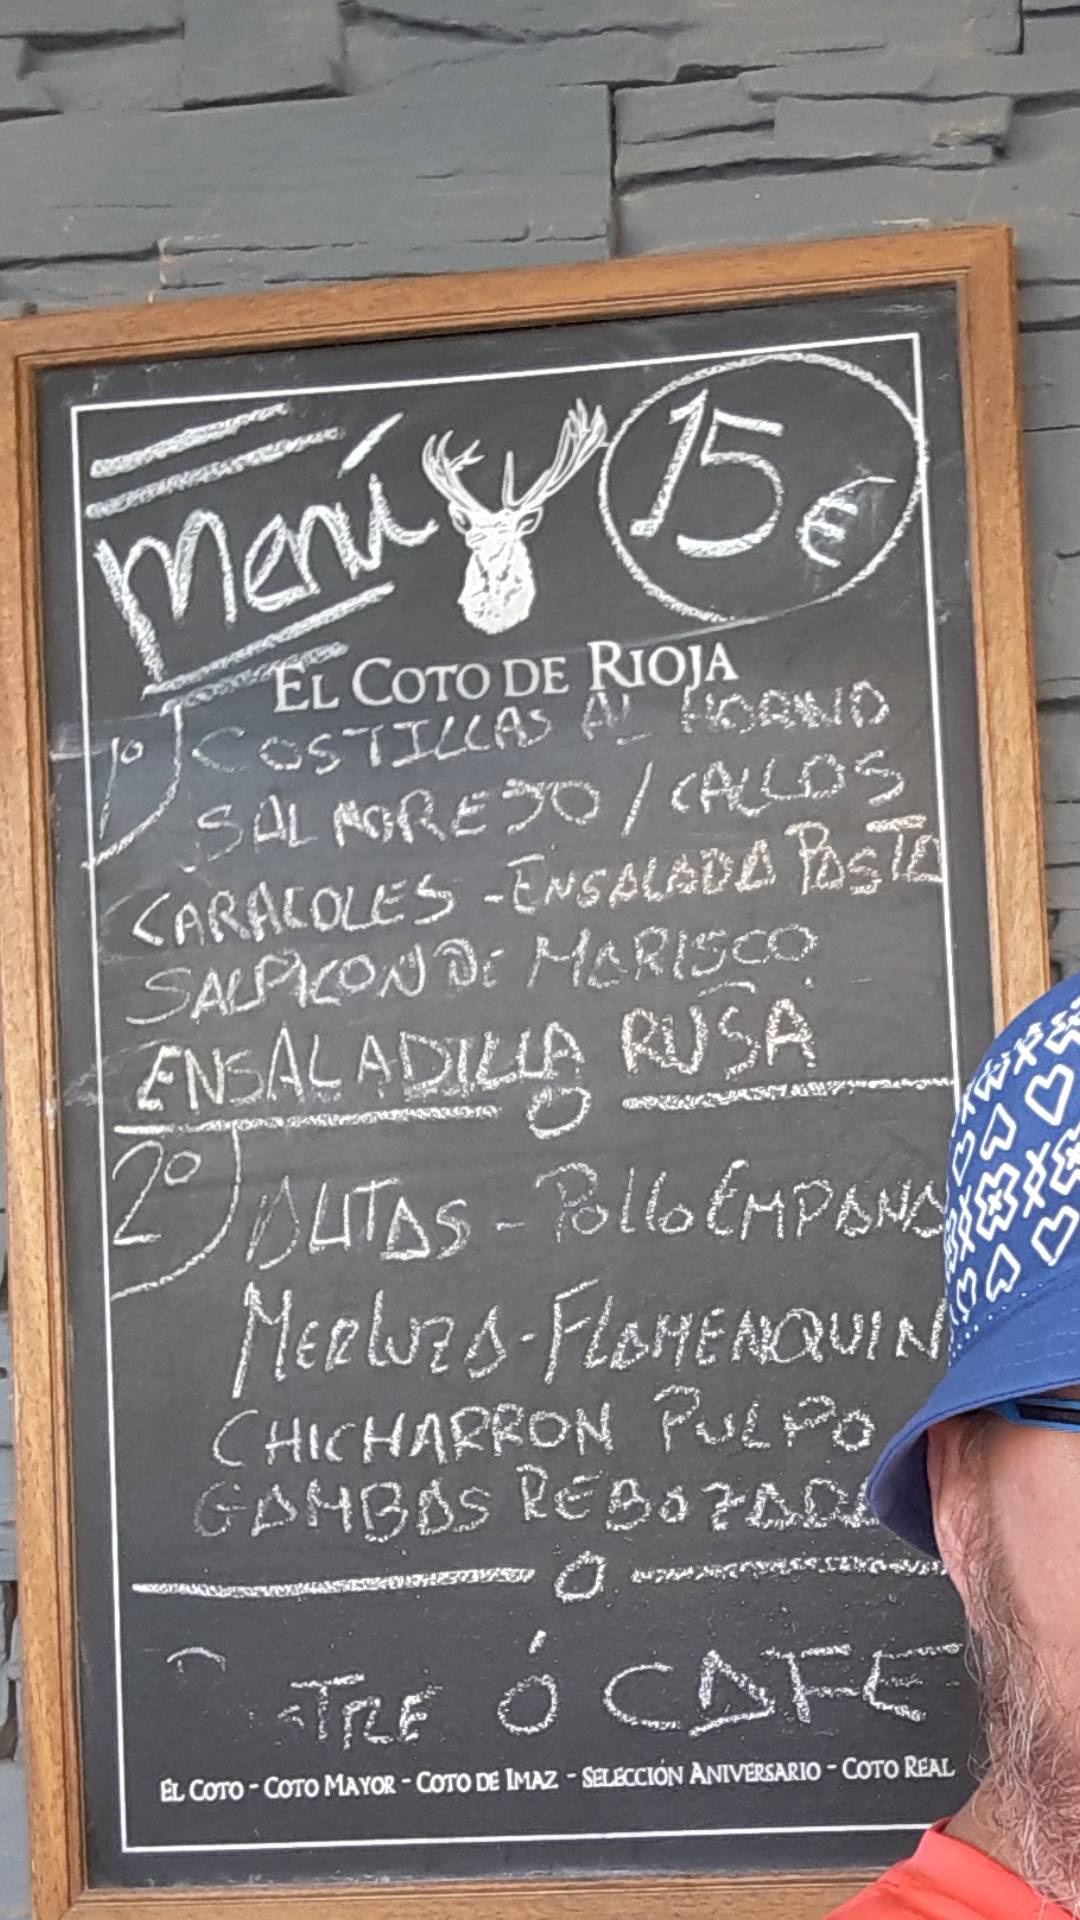 Menú
15 €
EL COTO DE RIOJA
1º COSTILLAS AL HORNO
SALMOREJO / CALLOS
CARACOLES - ENSALADA PASTA
SALPICON DE MARISCO
ENSALADILLA RUSA
2º ALITAS - POLLO EMPANA
MERLUZA - FLAMENQUIN
CHICHARRON PULPO
GAMBAS REBOZADA
Ó CAFE
EL COTO - COTO MAYOR - COTO DE IMAZ - SELECCIÓN ANIVERSARIO - COTO REAL